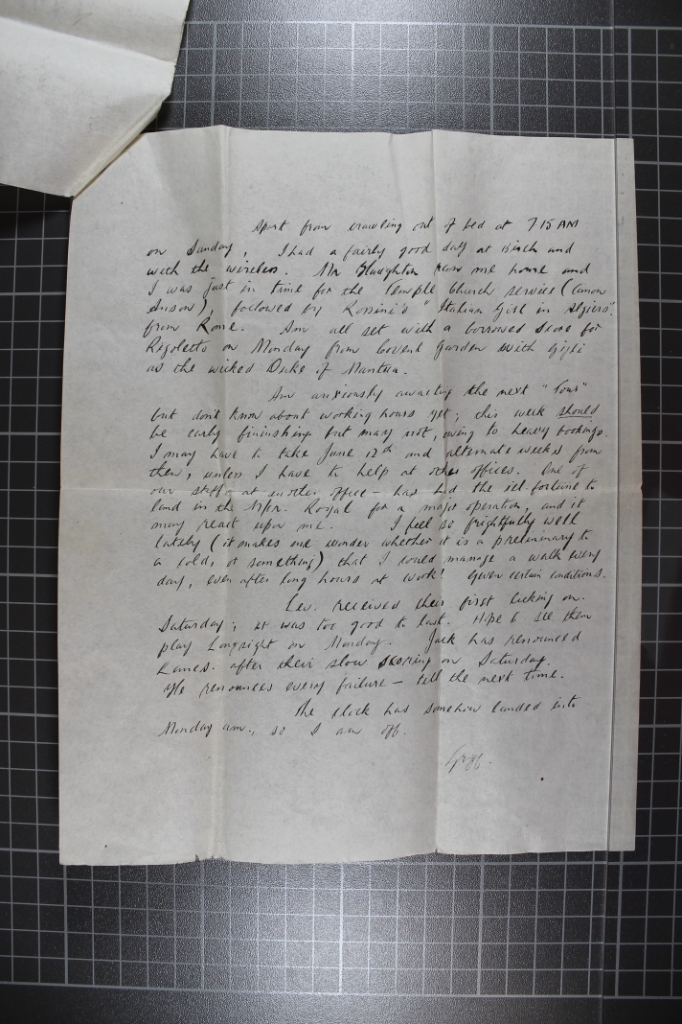 Apart from crawling out of bed at 715 AM
on Sunday, I had a fairly good day at Birch and
with the wireless. Mr Slaughton ran me home and
I was just in time for the Temple Church service (Canon
Anson), followed by Rossini's "Italian Girl in Algiers",
from Rome. Am all set with a borrowed score for
Rigoletto on Monday from Covent Garden with Gigli
as the wicked Duke of Mantua.
Am anxiously awaiting the next "Tour"
but don't know about working hours yet; this week should
be early finishing but may not, owing to heavy bookings.
I may have to take June 12th and alternate weeks from
then, unless I have to help at other offices. One of
our staff - at another office - has had the ill-fortune to
land in the M/cr. Royal for a major operation, and it
may react upon me. I feel so frightfully well
lately (it makes one wonder whether it is a preliminary to
a cold, or something) that I could manage a walk every
day, even after long hours at work! Given certain conditions.
Lev. received their first licking on
Saturday; it was too good to last. Hope to see them
play Longsight on Monday. Jack has renounced
Lancs. after their slow scoring on Saturday.
He renounces every failure - till the next time.
The clock has somehow landed into
Monday am., so I am off.